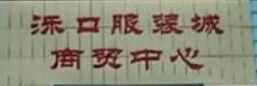 泺口服装城
商贸中心